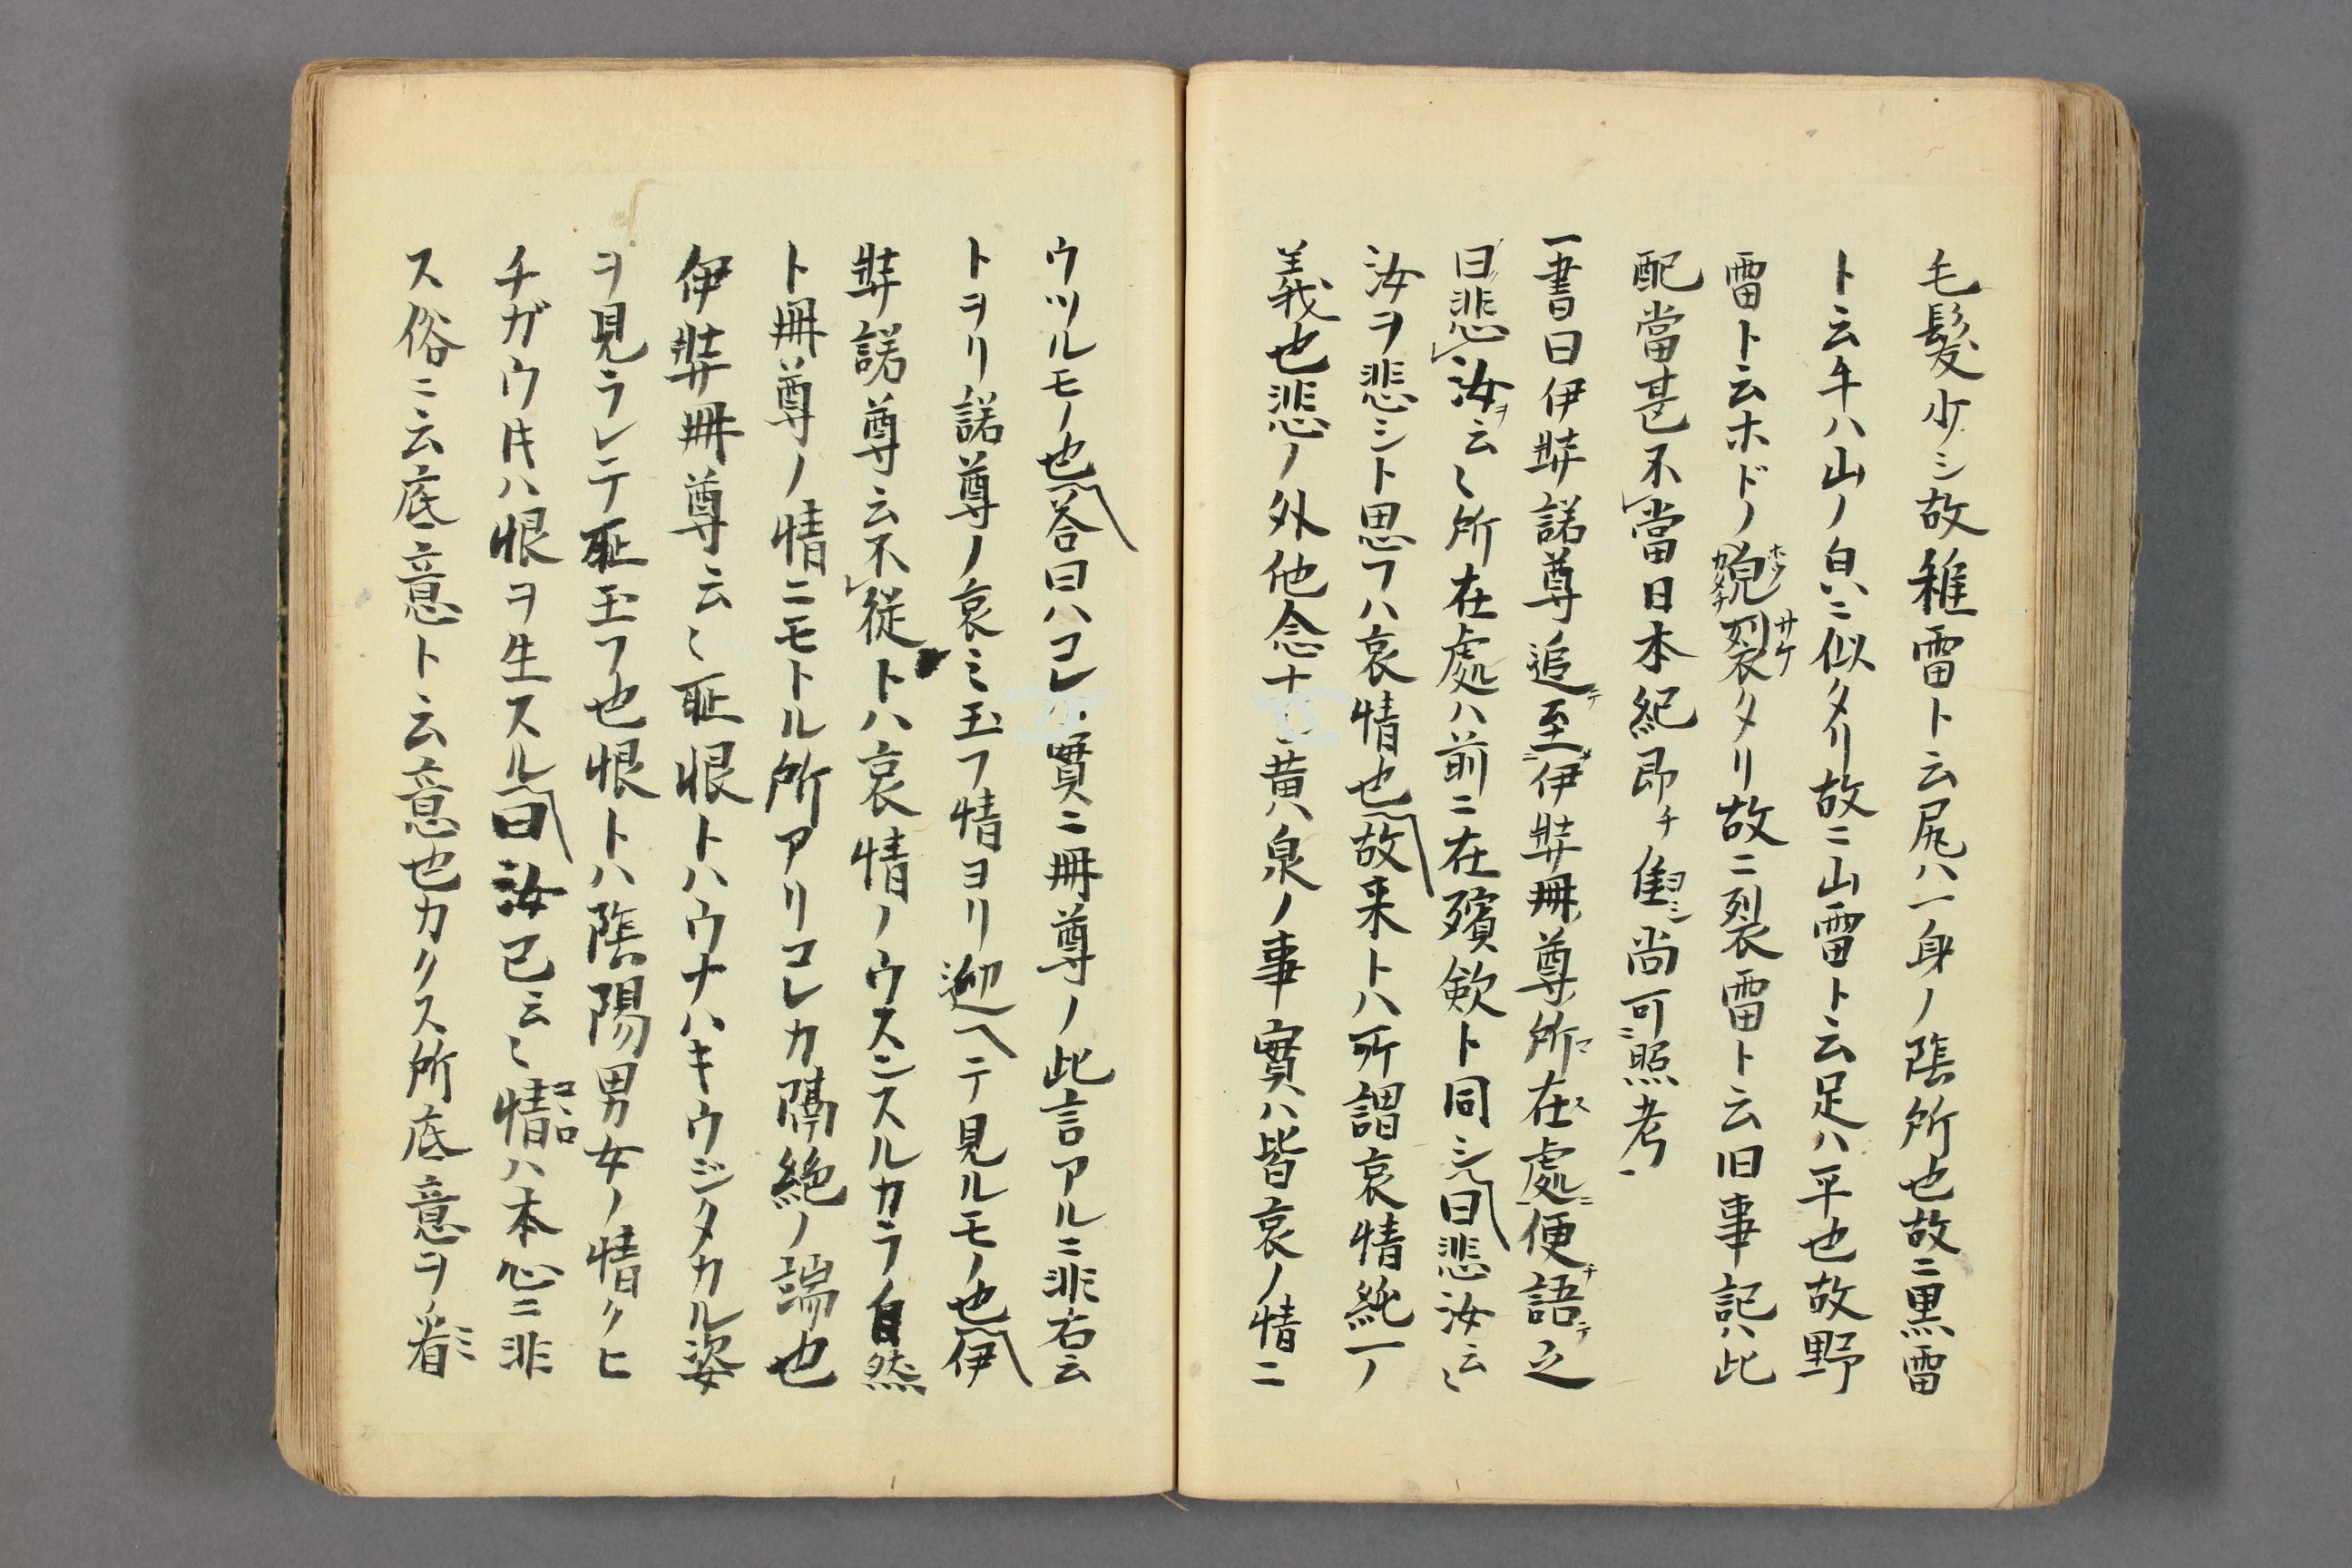 毛髮少シ故稚雷ト云尻ハ一身ノ陰所也故ニ黒雷
ト云手ハ山ノ㒵ニ似タリ故ニ山雷ト云足ハ平也故野
雷ト云ホドノ皃裂タリ故ニ裂雷ト云旧事記ハ此
配當甚不當日本紀即チ隹シ尚可照考
一書曰伊弉諾尊追テ至伊弉冊尊所在處ニ便語テ之
曰悲汝ヲ云〻所在處ハ前ニ在殯歛ト同シ曰悲汝云〻
汝ヲ悲シト思フハ哀情也故来トハ所謂哀情純一ノ
義也悲ノ外他念ナ黄泉ノ事實ハ皆哀ノ情ニ
ウツルモノ也荅曰ハコレ實ニ冊尊ノ此言アルニ非右云
トヲリ諾尊ノ哀ミ玉フ情ヨリ迎ヘテ見ルモノ也伊
弉諾尊云不從トハ哀情ノウスンスルカラノ自然
ト冊尊ノ情ニモトル所アリコレカ隔絶ノ端也
伊弉冊尊云〻耻恨トハウナハキウジタカル姿
ヲ見ラレテ耻玉フ也恨トハ陰陽男女ノ情クヒ
チガウ片ハ恨ヲ生スル曰汝已云〻情ハ本心ニ非
ス俗ニ云底意ト云意也カクス所底意ヲ看